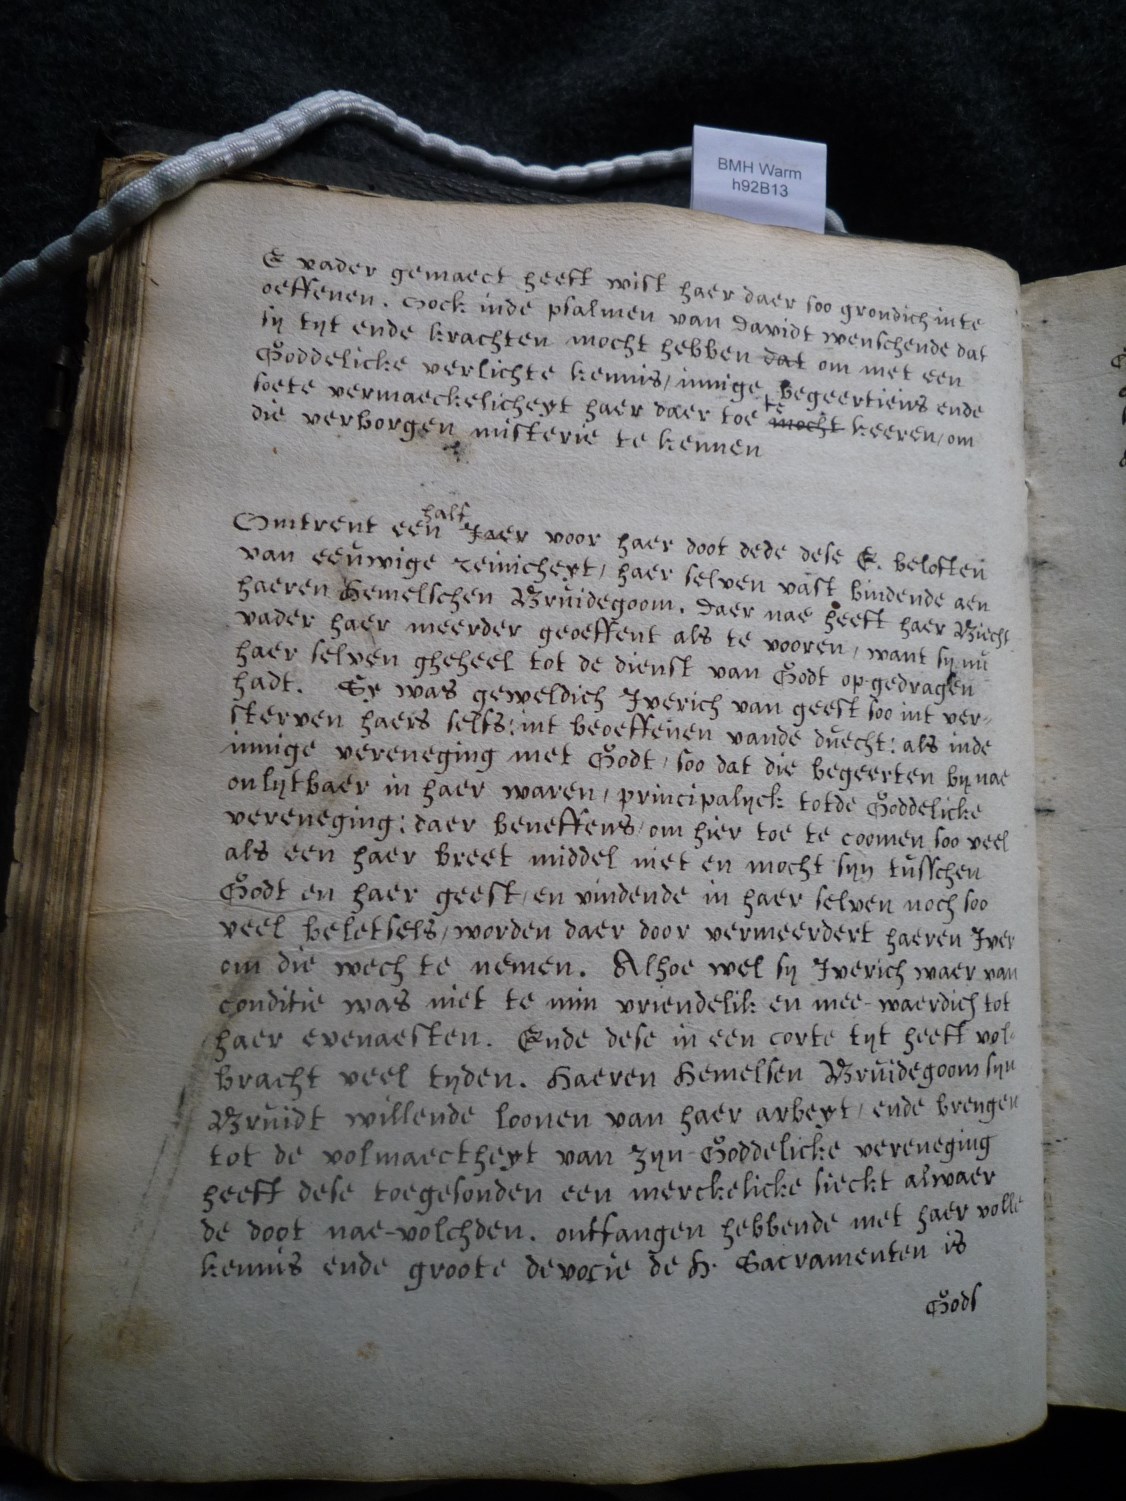 BMH Warm
h92B13
E vader gemaect heeft wist haer daer soo grondich in te
oeffenen. Oock inde psalmen van Davidt wenschende dat
sij tijt ende krachten mocht hebben dat om met een
Goddelicke verlichte kennis/innige begeertiens ende
soete vermaeckelicheyt haer daer toe mocht te keeren/om
die verborgen misterie te kennen
Omtrent een half Jaer voor haer doot dede dese E. beloften
van eeuwige reinicheyt/haer selven vast bindende aen
haeren Hemelschen Bruidegoom. Daer nae heeft haer Biecht
vader haer meerder geoeffent als te vooren/want sij nu
haer selven gheheel tot de dienst van Godt op-gedragen
hadt. Sy was geweldich Iverich van geest soo int ver-
sterven haers selfs: int beoeffenen vande duecht: als inde
innige vereneging met Godt/soo dat die begeerten bij nae
onlijtbaer in haer waren/principalijck totde Goddelicke
vereneging: daer beneffens/om hier toe te coomen soo veel
als een haer breet middel niet en mocht sijn tusschen
Godt en haer geest/en vindende in haer selven noch soo
veel beletsels/worden daer door vermeerdert haeren Iver
om die wech te nemen. Alhoe wel sij Iverich waer van
conditie was niet te min vriendelik en mee-waerdich tot
haer evenaesten. Ende dese in een corte tijt heeft vol-
bracht veel tijden. Haeren Hemelsen Bruidegoom sijn
Bruidt willende loonen van haer arbeyt/ende brengen
tot de volmaectheyt van zijn Goddelicke vereneging
heeft dese toegesonden een merckelicke sieckt alwaer
de doot nae-volchden. ontfangen hebbende met haer volle
kennis ende groote devocie de H. Sacramenten is
Gods